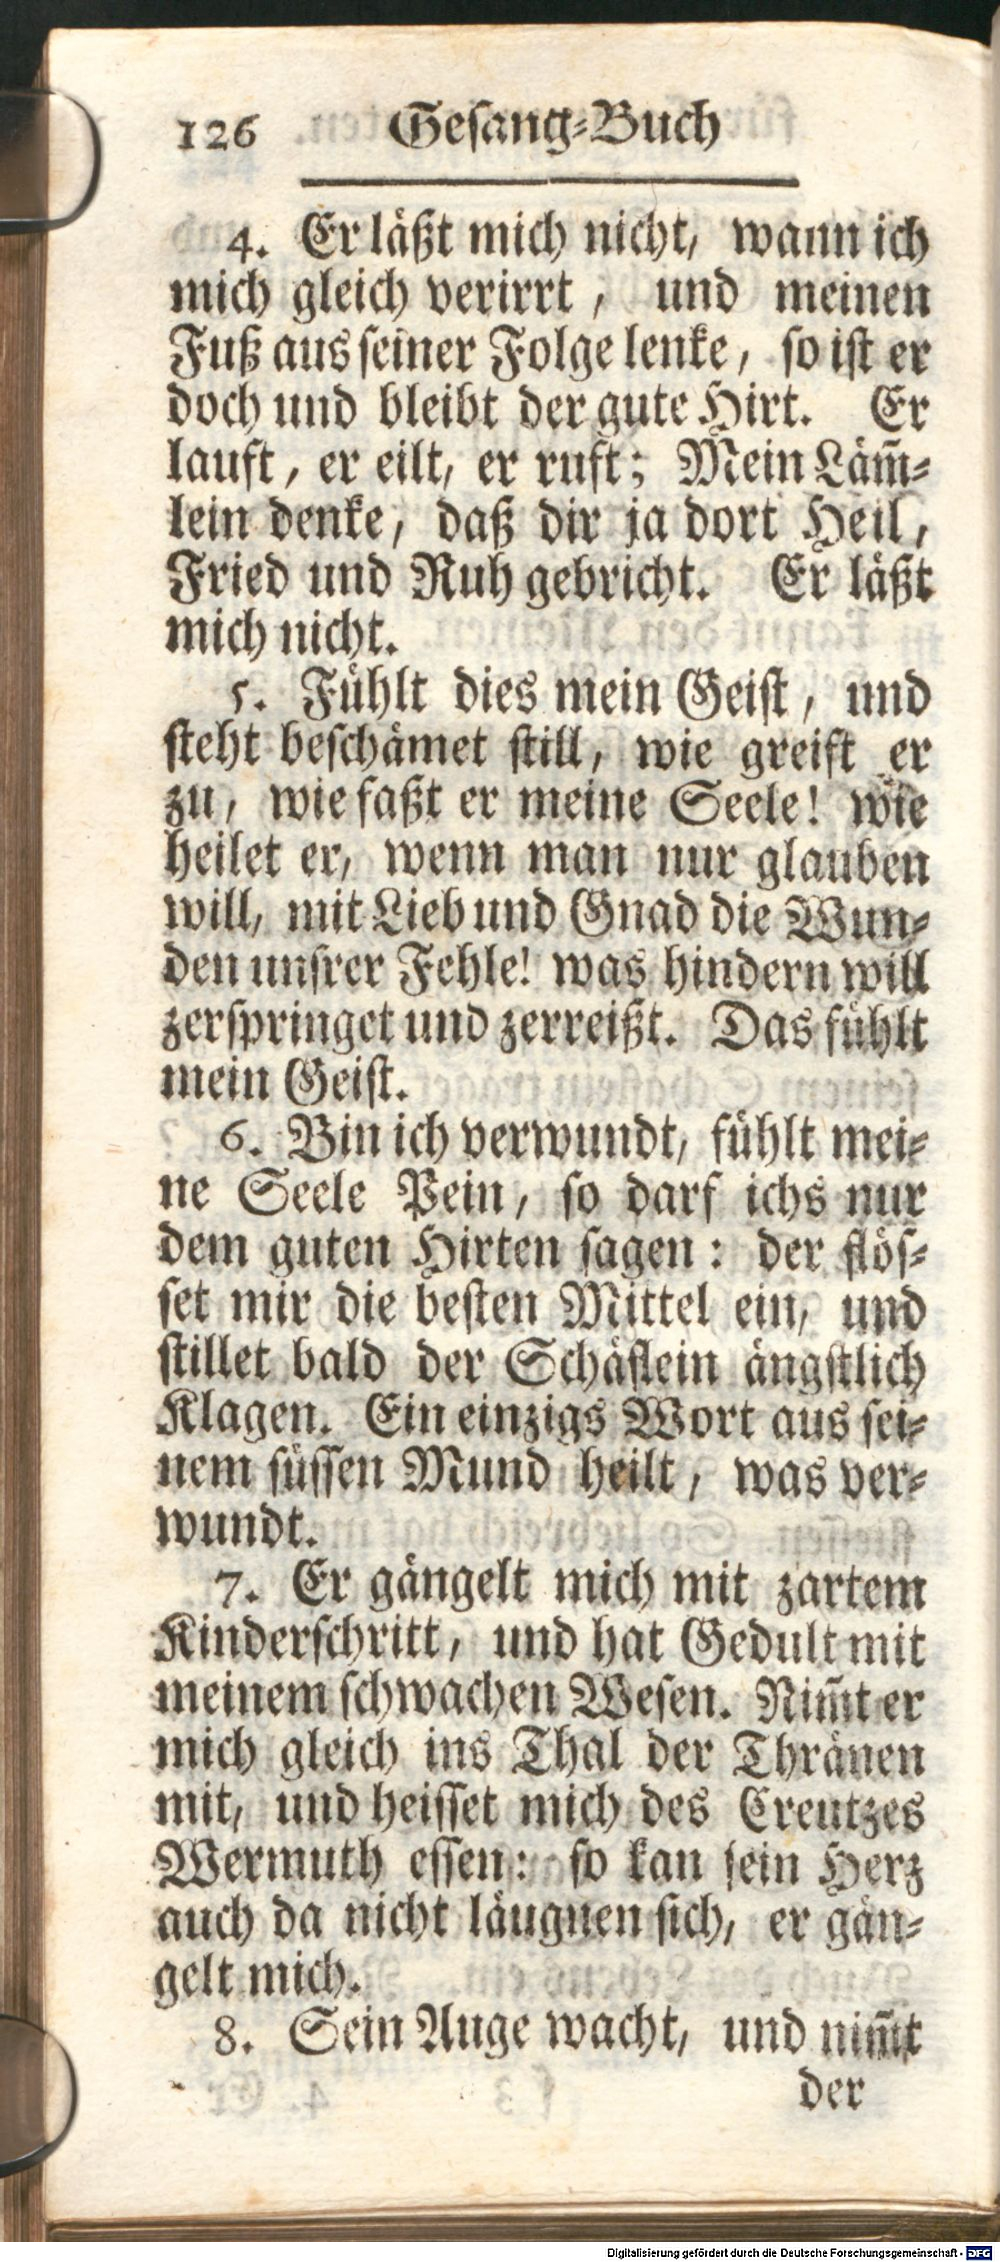 126 Gesang-Buch
4. Er läßt mich nicht, wann ich
mich gleich verirrt, und meinen
Fuß aus seiner Folge lenke, so ist er
doch und bleibt der gute Hirt. Er
lauft, er eilt, er ruft; Mein Läm̄-
lein denke, daß dir ja dort Heil,
Fried und Ruh gebricht. Er läßt
mich nicht.
5. Fühlt dies mein Geist, und
steht beschämet still, wie greift er
zu, wie faßt er meine Seele! wie
heilet er, wenn man nur glauben
will, mit Lieb und Gnad die Wun-
den unsrer Fehle! was hindern will
zerspringet und zerreißt. Das fühlt
mein Geist.
6. Bin ich verwundt, fühlt mei-
ne Seele Pein, so darf ichs nur
dem guten Hirten sagen: der flös-
set mir die besten Mittel ein, und
stillet bald der Schäflein ängstlich
Klagen. Ein einzigs Wort aus sei-
nem süssen Mund heilt, was ver-
wundt.
7. Er gängelt mich mit zartem
Kinderschritt, und hat Gedult mit
meinem schwachen Wesen. Nim̄t er
mich gleich ins Thal der Thränen
mit, und heisset mich des Creutzes
Wermuth essen: so kan sein Herz
auch da nicht läugnen sich, er gän-
gelt mich.
8. Sein Auge wacht, und nim̄t
der
Digitalisierung gefördert durch die Deutsche Forschungsgemeinschaft - DFG